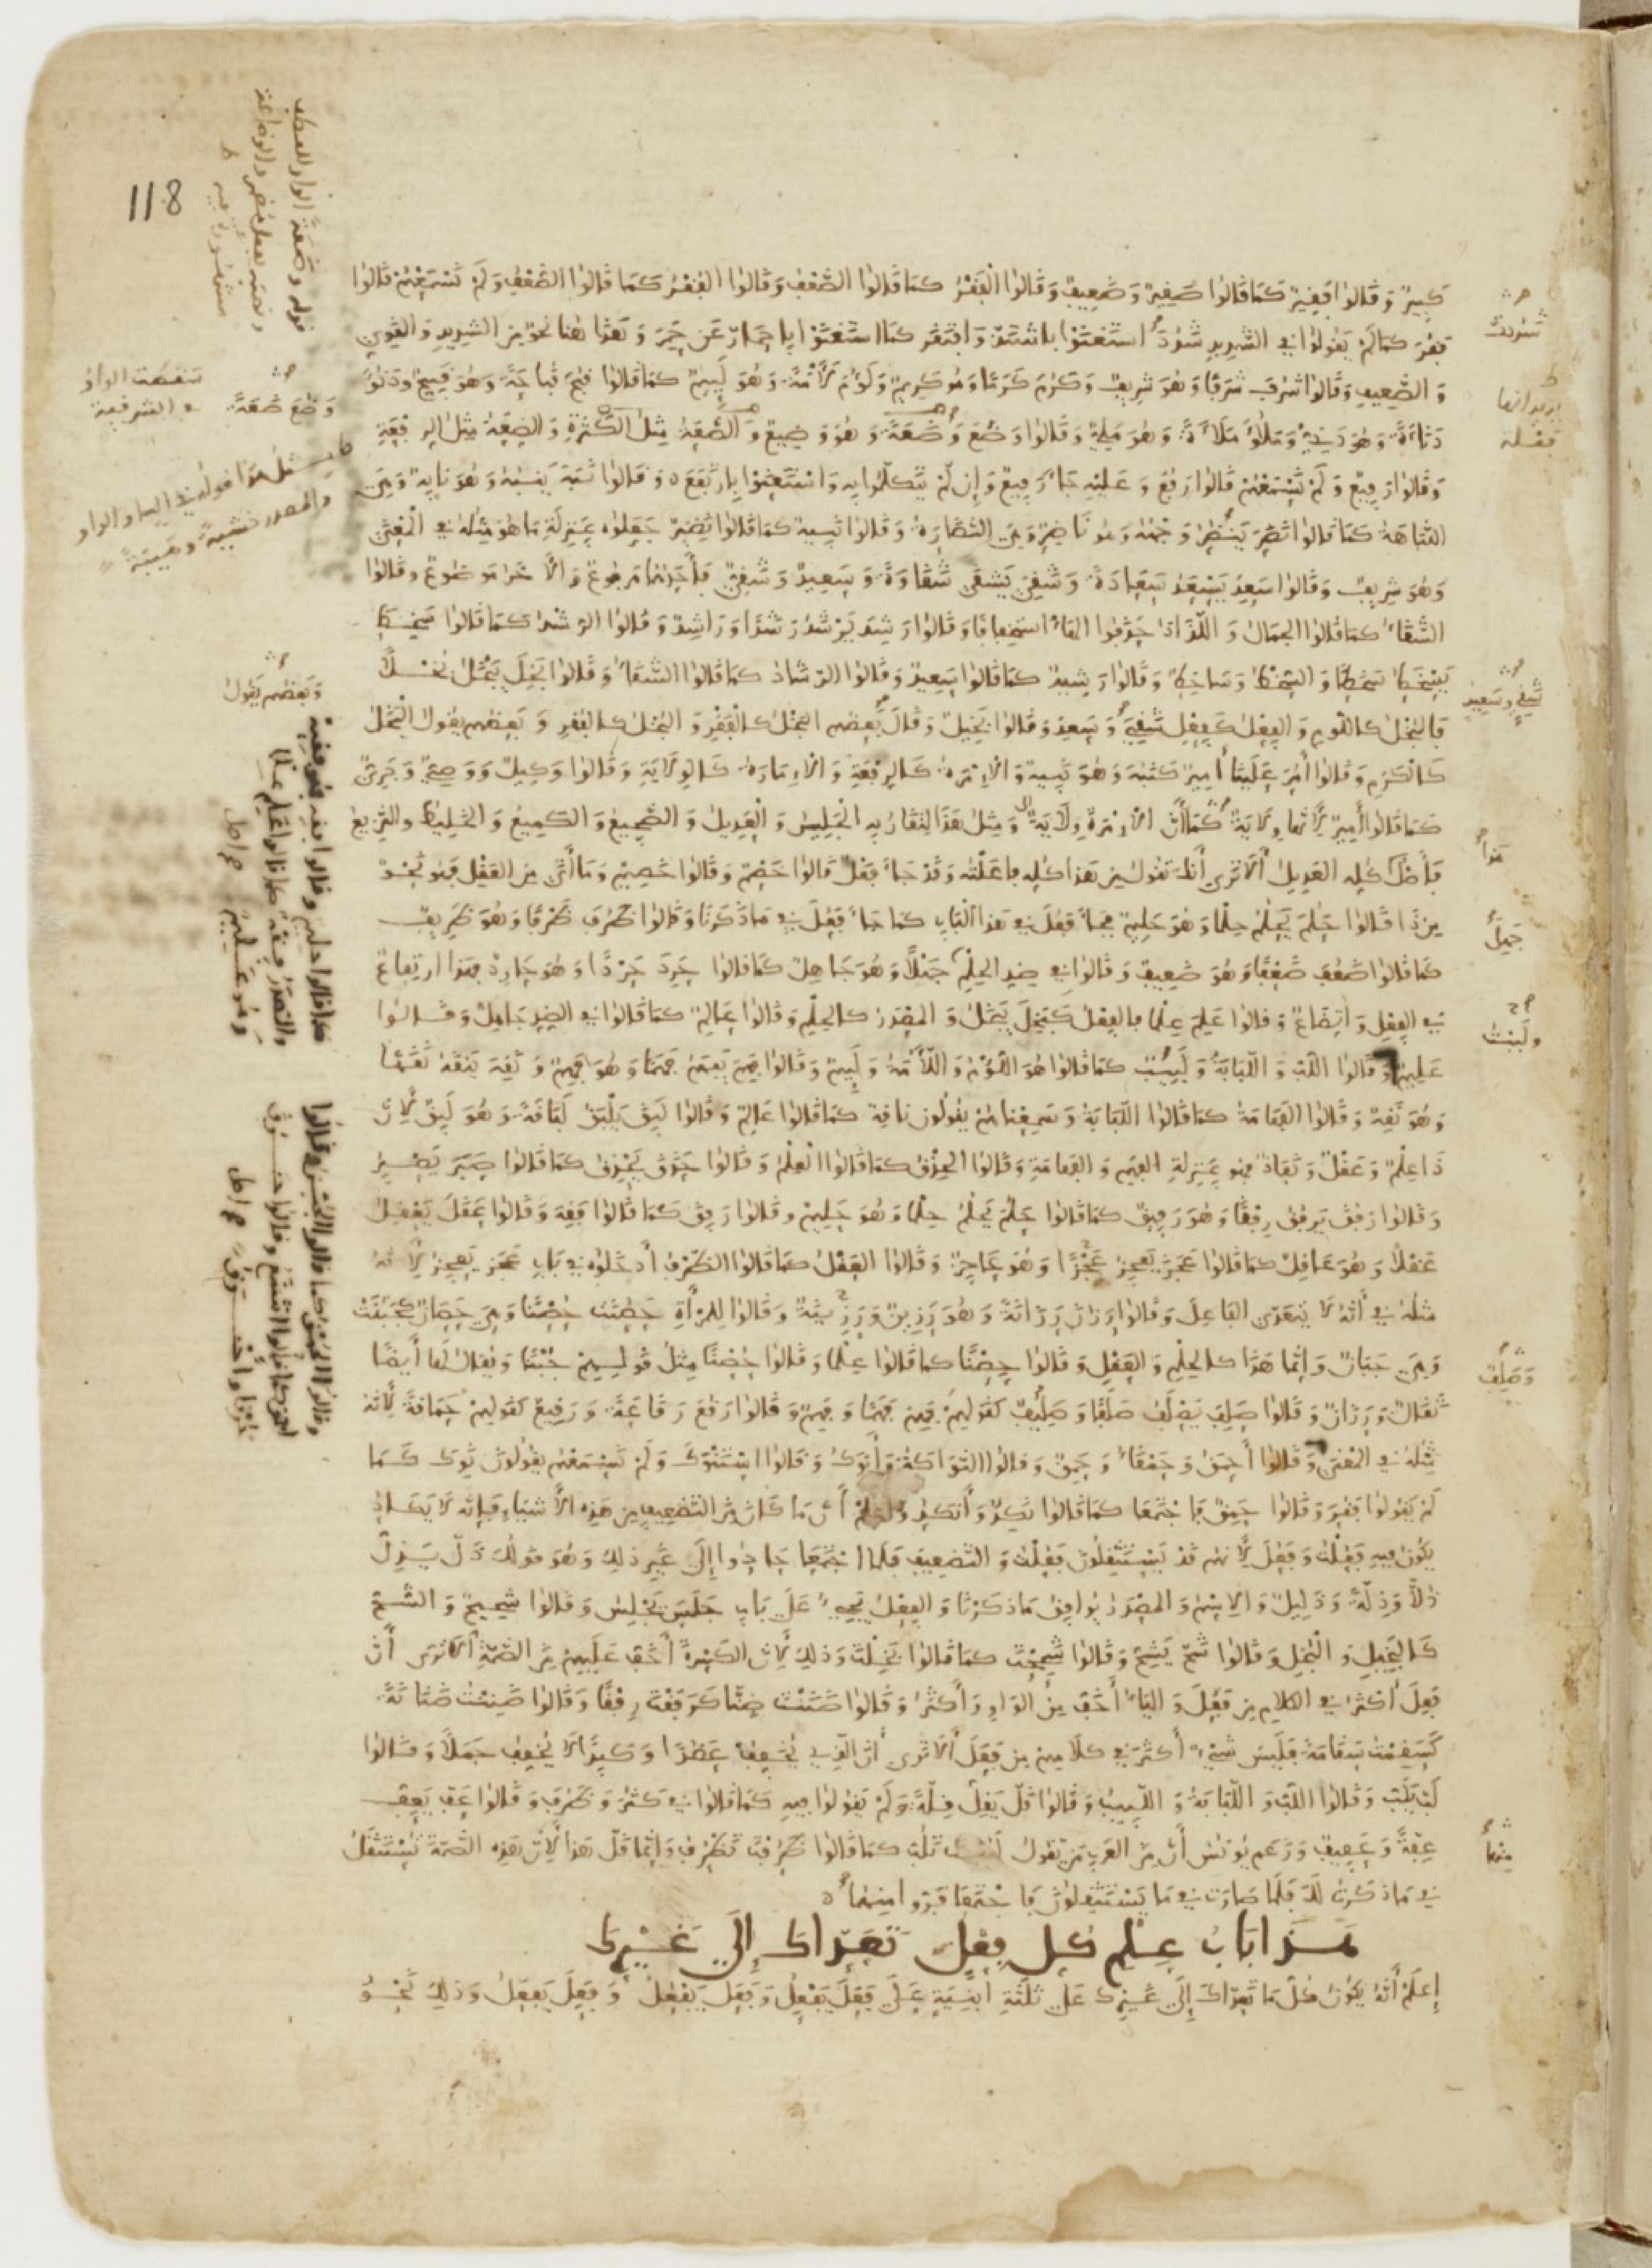 كبير وقالوا فقير كما قالوا صغير وضعيف وقالوا الفقر كما قالوا الضعف وقالوا الفقر كما قالوا الضعف ولم نسمعهم قالوا
فقر كما لم يقولوا في الشديد شدد استغنوا باشتد وافتقر كما استغنوا باحمار عن حمر وهذا هنا نحو من الشديد والقوي
والضعيف وقالوا شرف شرفا وهو شريف وكرم كرما وهو كريم ولؤم لآمة وهو لئيم كما قالوا قبح قباحة وهو قبيح ودنؤ
دناءة وهو دنيء وملؤ ملاءة وهو مليء وقالوا وضع ضعة وهو وضيع والضعة مثل الكثرة والضعة مثل الرفعة
وقالوا رفيع ولم نسمعهم قالوا رفع وعليه جاء رفيع وإن لم يتكلموا به واستغنوا بارتفع وقالوا نبه ينبه وهو نابه وهي
النباهة كما قالوا نضر ينضر وجهه وهو ناضر وهي النضارة وقالوا نبيه كما قالوا نضير جعلوه بمنزلة ما هو مثله في المعنى
وهو شريف وقالوا سعد يسعد سعادة وشقي يشقى شقاوة وسعيد وشقي فأحدهما مرفوع والآخر موضوع وقالوا
الشقاء كما قالوا الجمال واللذاذ حذفوا الهاء استخفافا وقالوا رشد يرشد رشدا وراشد وقالوا الرشد كما قالوا سخط
يسخط سخطا والسخط وساخط وقالوا رشيد كما قالوا سعيد وقالوا الرشاد كما قالوا الشقاء وقالوا بخل يبخل بخلا
فالبخل كاللؤم والفعل كفعل شقي وسعد وقالوا بخيل وقال بعضهم البخل كالفقر والبخل كالفقر وبعضهم يقول البخل
كالكرم وقالوا أمر علينا أمير كنبه وهو نبيه والإمرة كالرفعة والإمارة كالولاية وقالوا وكيل ووصي وجري
كما قالوا أمير لأنها ولاية كما أن الإمرة ولاية ومثل هذا لتقاربه الجليس والعديل والضجيع والكميع والخليط والنزيع
فأصل كله العديل ألا ترى أنك تقول من هذا كله فاعلته وقد جاء فعل قالوا خصم وقالوا خصيم وما أتى من العقل فهو نحو
من ذا قالوا حلم يحلم حلما وهو حليم فجاء فعل في هذا الباب كما جاء فعل في ما ذكرنا وقالوا ظرف ظرفا وهو ظريف
كما قالوا ضعف ضعفا وهو ضعيف وقالوا في ضد الحلم جهلا وهو جاهل كما قالوا حرد حردا وهو حارد فهذا ارتفاع
في الفعل واتضاع وقالوا علم علما فالفعل كبخل يبخل والمصدر كالحلم وقالوا عالم كما قالوا في الضد جاهل وقالوا
عليم وقالوا اللب واللبابة ولبيب كما قالوا هو اللؤم واللآمة ولئيم وقالوا فهم يفهم فهما وهو فهم ونقه ينقه نقها
وهو نقه وقالوا الفهامة كما قالوا اللبابة وسمعناهم يقولون ناقه كما قالوا عالم وقالوا لبق يلبق لباقة وهو لبق لأن
ذا علم وعقل ونفاذ فهو بمنزلة الفهم والفهامة وقالوا الحذق كما قالوا العلم وقالوا حذق يحذق كما قالوا صبر يصبر
وقالوا رفق يرفق رفقا وهو رفيق كما قالوا حلم يحلم حلما وهو حليم وقالوا رفق كما قالوا فقه وقالوا عقل يعقل
عقلا وهو عاقل كما قالوا عجز يعجز عجزا وهو عاجز وقالوا العقل كما قالوا الظرف أدخلوه في باب عجز يعجز لأنه
مثله في أنه لا يتعدى الفاعل وقالوا رزن رزانة وهو رزين ورزينة وقالوا للمرأة حصنت حصنا وهي حصان كجبنت
وهي جبان وإنما هذا كالحلم والعقل وقالوا حصنا كما قالوا علما وقالوا حصنا مثل قولهم جبنا ويقال لها أيضا
ثقال ورزان وقالوا صلف يصلف صلفا وصلف كقولهم فهم فهما وفهم وقالوا رقع رقاعة ورقيع كقولهم حمق حماقة لأنه
مثله في المعنى وقالوا أحمق وحمقاء وحمق وقالوا النواكة وأنوك وقالوا استنوك ولم نسمعهم يقولون نوك كما
لم يقولوا فقر وقالوا حمق فاجتمعا كما قالوا نكد وأنكد واعلم أن ما كان من التضعيف من هذه الأشياء فإنه لا يكاد
يكون فيه فعلت وفعل لأنهم قد يستثقلون فعل والتضعيف فلما اجتمعا حادوا إلى غير ذلك وهو قولك ذل يذل
ذلا وذلة وذليل والاسم والمصدر يوافق ما ذكرنا والفعل يجيء على باب جلس يجلس وقالوا شحيح والشح
كالبخيل والبخل وقالوا شح يشح وقالوا شححت كما قالوا بخلت وذلك لأن الكسرة أخف عليهم من الضمة ألا ترى أن
فعل أكثر في الكلام من فعل والياء أخف من الواو وأكثر وقالوا ضننت ضنا كرفقت رفقا وقالوا ضننت ضنانة
كسقمت سقامة فليس شيء أكثر في كلامهم من فعل ألا ترى أن الذي يخفف عضدا وكبدا لا يخفف جملا وقالوا
لب يلب وقالوا اللب واللبابة واللبيب وقالوا قل يقل قلة ولم يقولوا فيه كما قالوا في كثر وظرف وقالوا عف يعف
عفة وعفيف وزعم يونس أن من العرب من يقول لببت تلب كما قالوا ظرفت تظرف وإنما قل هذا لأن هذه الضمة تستثقل
في ما ذكرت لك فلما صارت في ما يستثقلون فاجتمعا فروا منهما
هذا باب علم كل فعل تعداك إلى غيرك
إعلم أنه يكون كل ما تعداك إلى غيرك على ثلثة أبنية على فعل يفعل وفعل يفعل وفعل يفعل وذلك نحو
118
وبعضهم يقول